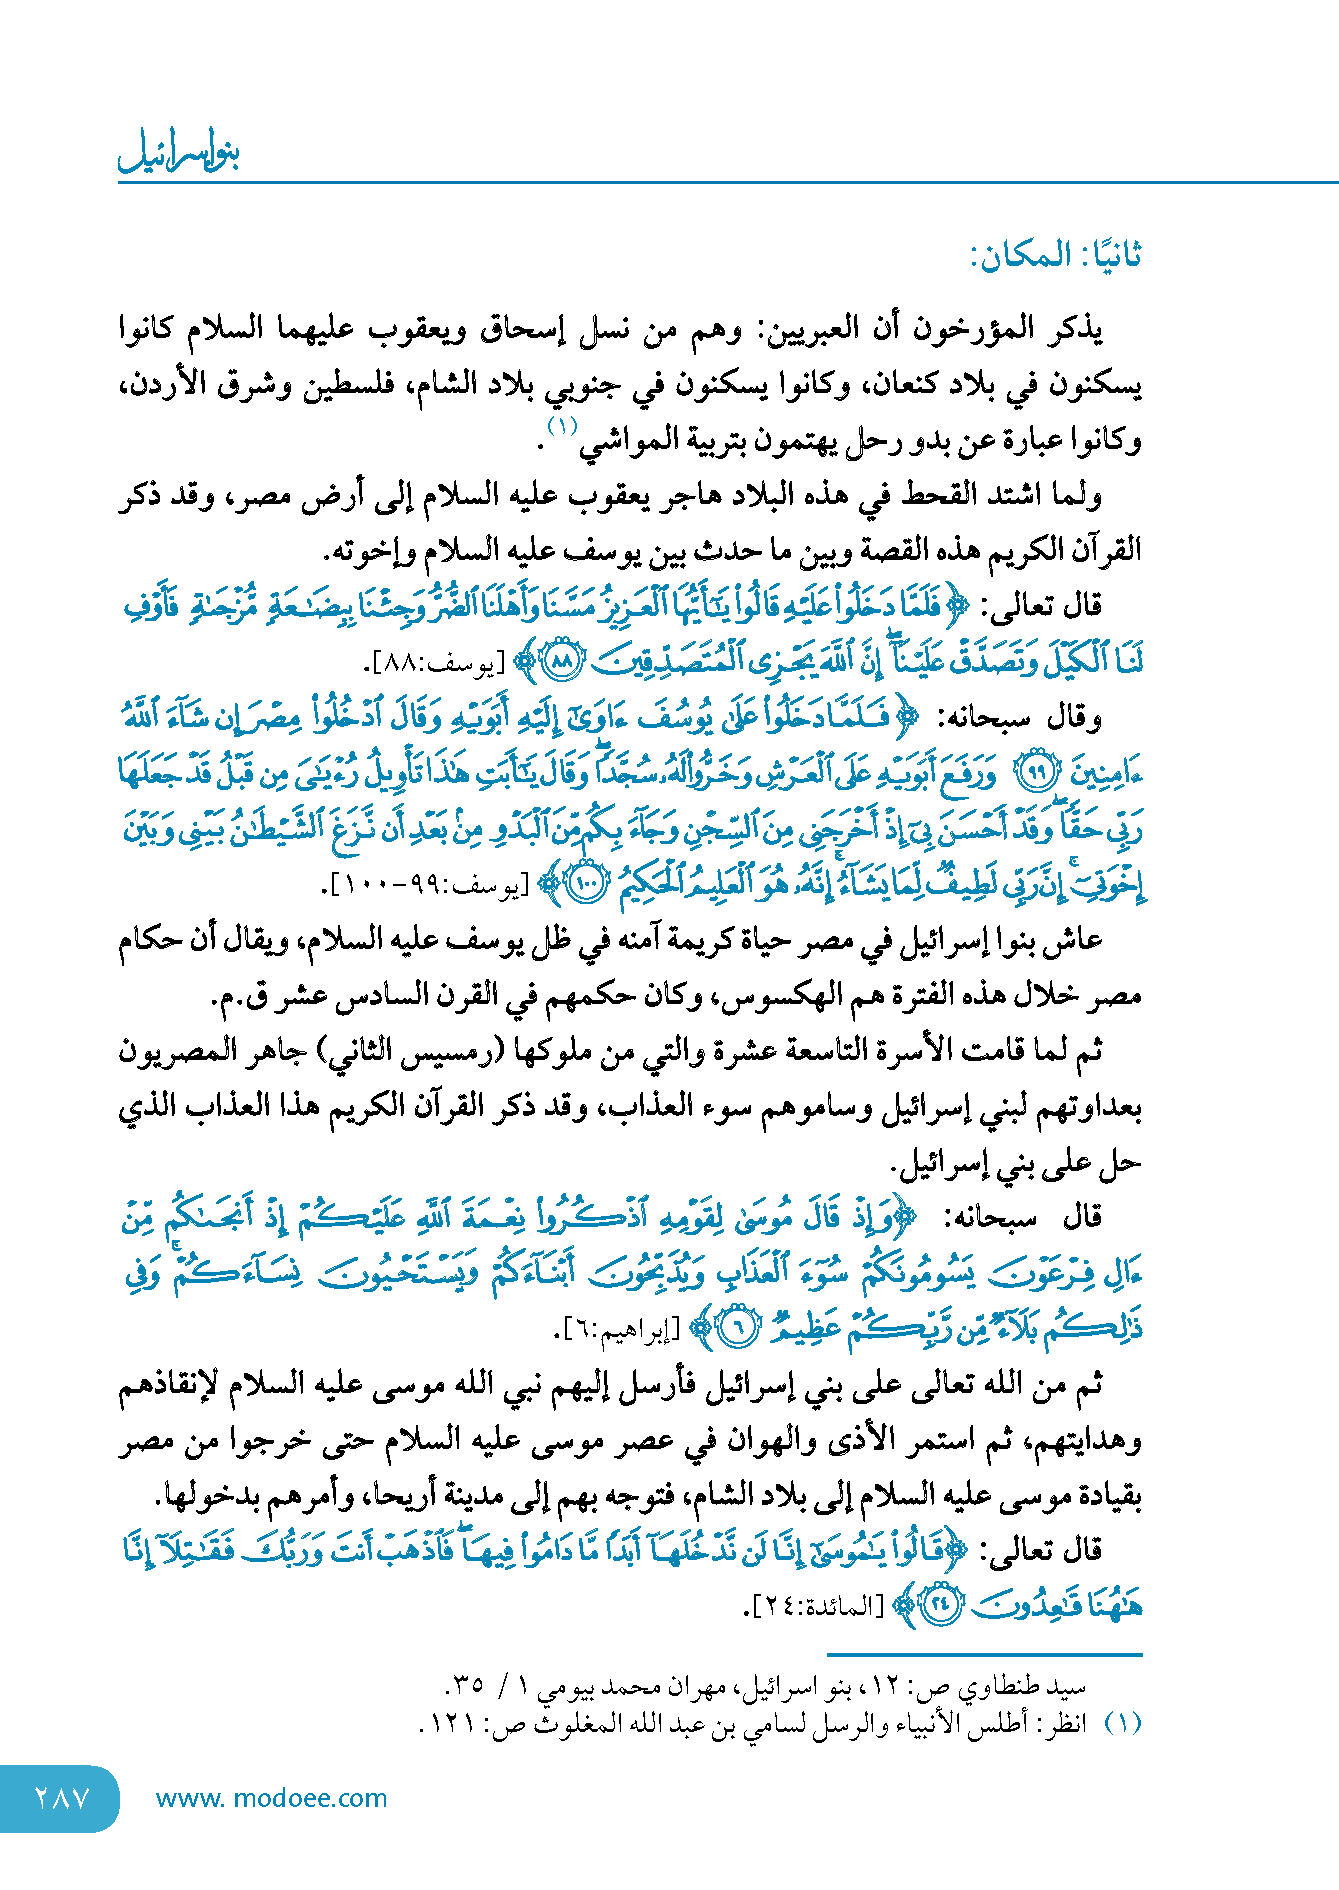 بنو إسرائيل
ثانيًا: المكان:
يذكر المؤرخون أن العبريين: وهم من نسل إسحاق ويعقوب عليهما السلام كانوا
يسكنون في بلاد كنعان، وكانوا يسكنون في جنوبي بلاد الشام، فلسطين وشرق الأردن،
وكانوا عبارة عن بدو رحل يهتمون بتربية المواشي(١).
ولما اشتد القحط في هذه البلاد هاجر يعقوب عليه السلام إلى أرض مصر، وقد ذكر
القرآن الكريم هذه القصة وبين ما حدث بين يوسف عليه السلام وإخوته.
قال تعالى: ﴿فَلَمَّا دَخَلُوا۟ عَلَيْهِ قَالُوا۟ يَـٰٓأَيُّهَا ٱلْعَزِيزُ مَسَّنَا وَأَهْلَنَا ٱلضُّرُّ وَجِئْنَا بِبِضَـٰعَةٍ مُّزْجَىٰةٍ فَأَوْفِ
لَنَا ٱلْكَيْلَ وَتَصَدَّقْ عَلَيْنَآ ۖ إِنَّ ٱللَّهَ يَجْزِى ٱلْمُتَصَدِّقِينَ ٨٨﴾ [يوسف:٨٨].
وقال سبحانه: ﴿فَلَمَّا دَخَلُوا۟ عَلَىٰ يُوسُفَ ءَاوَىٰٓ إِلَيْهِ أَبَوَيْهِ وَقَالَ ٱدْخُلُوا۟ مِصْرَ إِن شَآءَ ٱللَّهُ
ءَامِنِينَ ٩٩ وَرَفَعَ أَبَوَيْهِ عَلَى ٱلْعَرْشِ وَخَرُّوا۟ لَهُۥ سُجَّدًا ۖ وَقَالَ يَـٰٓأَبَتِ هَـٰذَا تَأْوِيلُ رُءْيَـٰىَ مِن قَبْلُ قَدْ جَعَلَهَا
رَبِّى حَقًّا ۖ وَقَدْ أَحْسَنَ بِىٓ إِذْ أَخْرَجَنِى مِنَ ٱلسِّجْنِ وَجَآءَ بِكُم مِّنَ ٱلْبَدْوِ مِنۢ بَعْدِ أَن نَّزَغَ ٱلشَّيْطَـٰنُ بَيْنِى وَبَيْنَ
إِخْوَتِىٓ ۚ إِنَّ رَبِّى لَطِيفٌ لِّمَا يَشَآءُ ۚ إِنَّهُۥ هُوَ ٱلْعَلِيمُ ٱلْحَكِيمُ ١٠٠﴾ [يوسف:٩٩-١٠٠].
عاش بنوا إسرائيل في مصر حياة كريمة آمنه في ظل يوسف عليه السلام، ويقال أن حكام
مصر خلال هذه الفترة هم الهكسوس، وكان حكمهم في القرن السادس عشر ق.م.
ثم لما قامت الأسرة التاسعة عشرة والتي من ملوكها (رمسيس الثاني) جاهر المصريون
بعداوتهم لبني إسرائيل وساموهم سوء العذاب، وقد ذكر القرآن الكريم هذا العذاب الذي
حل على بني إسرائيل.
قال سبحانه: ﴿وَإِذْ قَالَ مُوسَىٰ لِقَوْمِهِ ٱذْكُرُوا۟ نِعْمَةَ ٱللَّهِ عَلَيْكُمْ إِذْ أَنجَىٰكُم مِّنْ
ءَالِ فِرْعَوْنَ يَسُومُونَكُمْ سُوٓءَ ٱلْعَذَابِ وَيُذَبِّحُونَ أَبْنَآءَكُمْ وَيَسْتَحْيُونَ نِسَآءَكُمْ ۚ وَفِى
ذَٰلِكُم بَلَآءٌ مِّن رَّبِّكُمْ عَظِيمٌ ٦﴾ [إبراهيم:٦].
ثم من الله تعالى على بني إسرائيل فأرسل إليهم نبي الله موسى عليه السلام لإنقاذهم
وهدايتهم، ثم استمر الأذى والهوان في عصر موسى عليه السلام حتى خرجوا من مصر
بقيادة موسى عليه السلام إلى بلاد الشام، فتوجه بهم إلى مدينة أريحا، وأمرهم بدخولها.
قال تعالى: ﴿قَالُوا۟ يَـٰمُوسَىٰٓ إِنَّا لَن نَّدْخُلَهَآ أَبَدًا مَّا دَامُوا۟ فِيهَا ۖ فَٱذْهَبْ أَنتَ وَرَبُّكَ فَقَـٰتِلَآ إِنَّا
هَـٰهُنَا قَـٰعِدُونَ ٢٤﴾ [المائدة:٢٤].
سيد طنطاوي ص: ١٢، بنو اسرائيل، مهران محمد بيومي ١ / ٣٥.
(١) انظر: أطلس الأنبياء والرسل لسامي بن عبد الله المغلوث ص: ١٢١.
www. modoee.com
٢٨٧